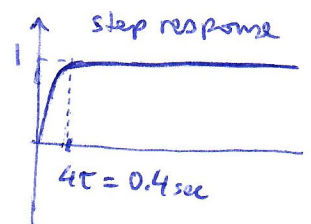 step response
1
4τ = 0.4 sec